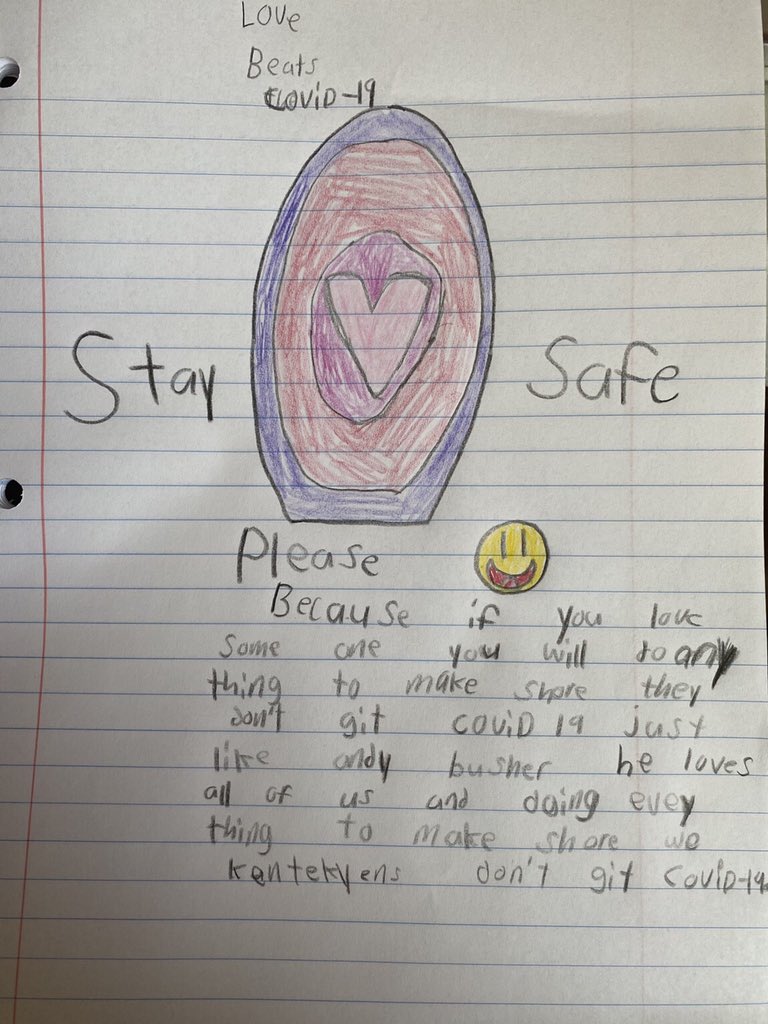 Love
Beats
COVID-19
Stay Safe
Please
Because if you love
some one you will to any
thing to make shore they
don't git COVID 19 just
like andy busher he loves
all of us and doing evey
thing to make shore we
kentekyens don't git COVID-19